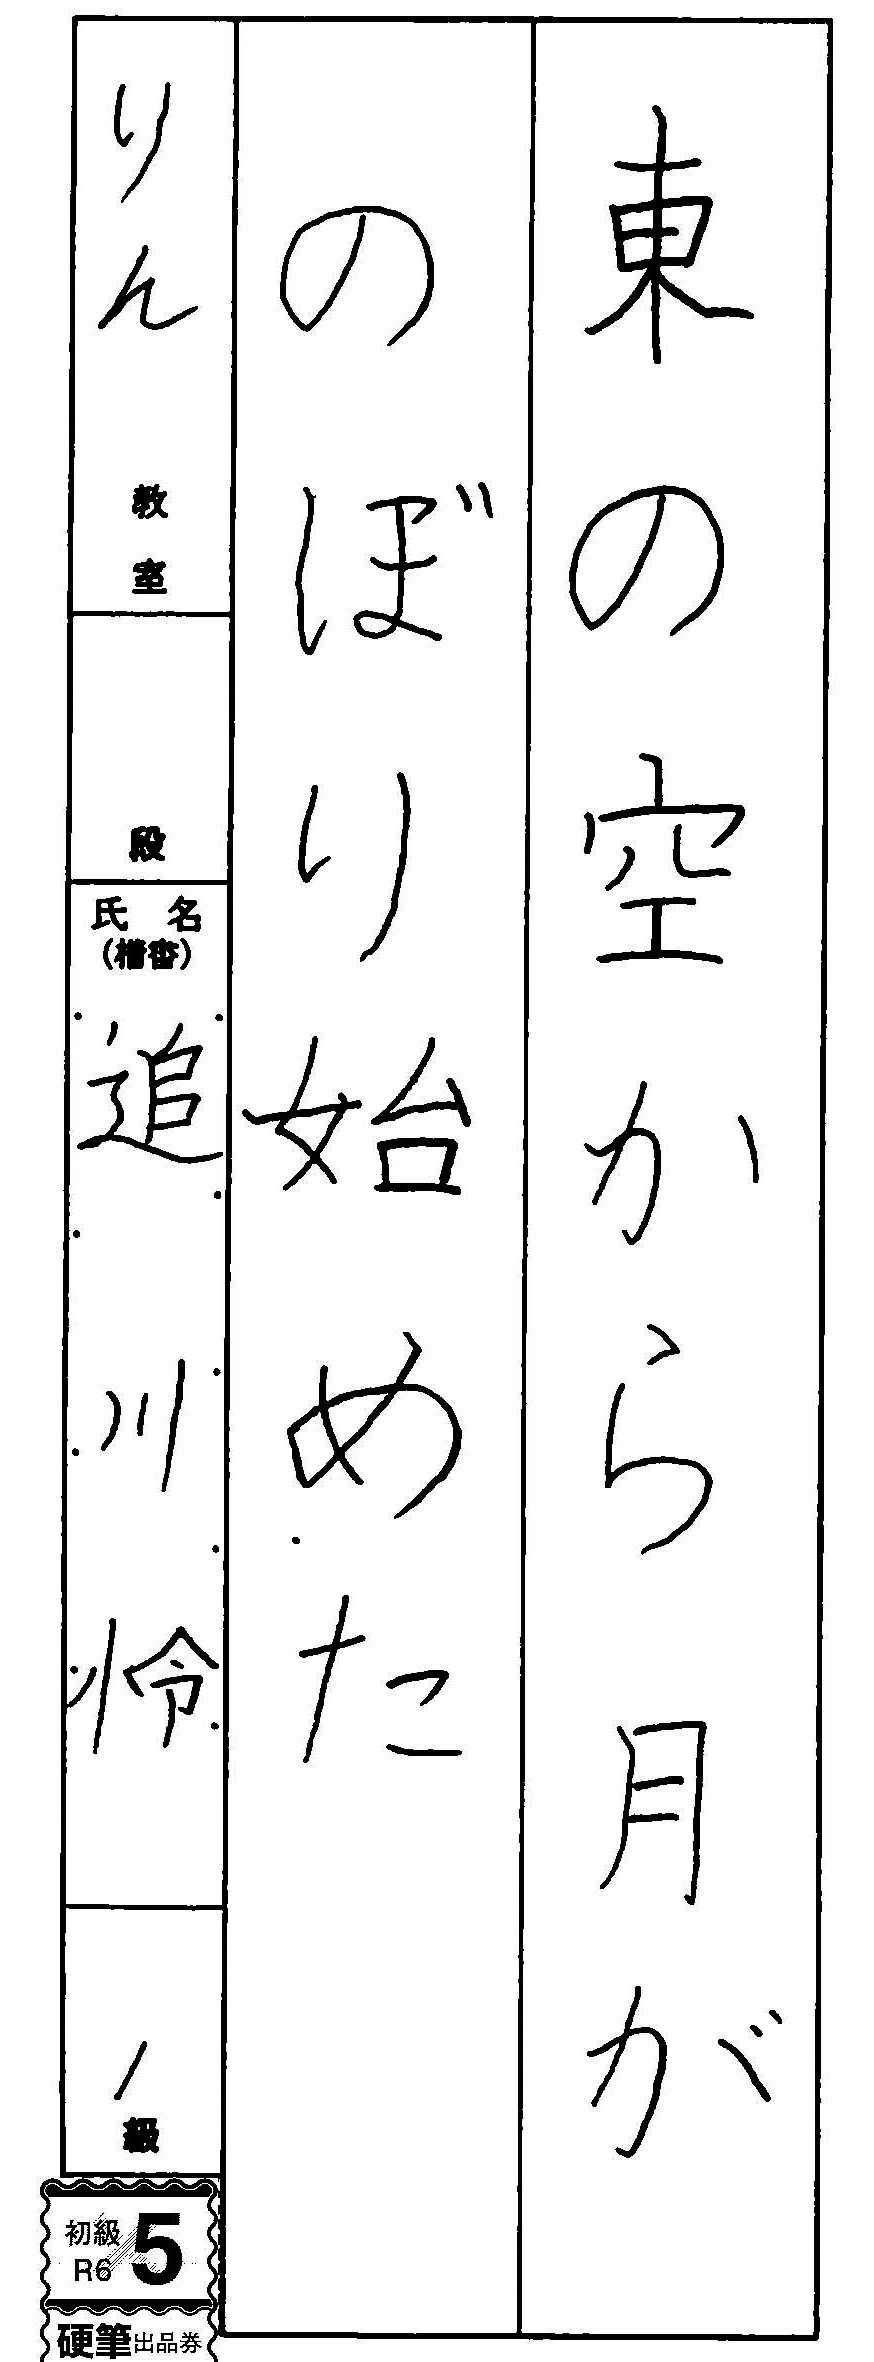 東の空から月が
のぼり始めた
りん教室
段
氏名
(楷書)
追川怜
1級
初級
R6
5
硬筆出品券